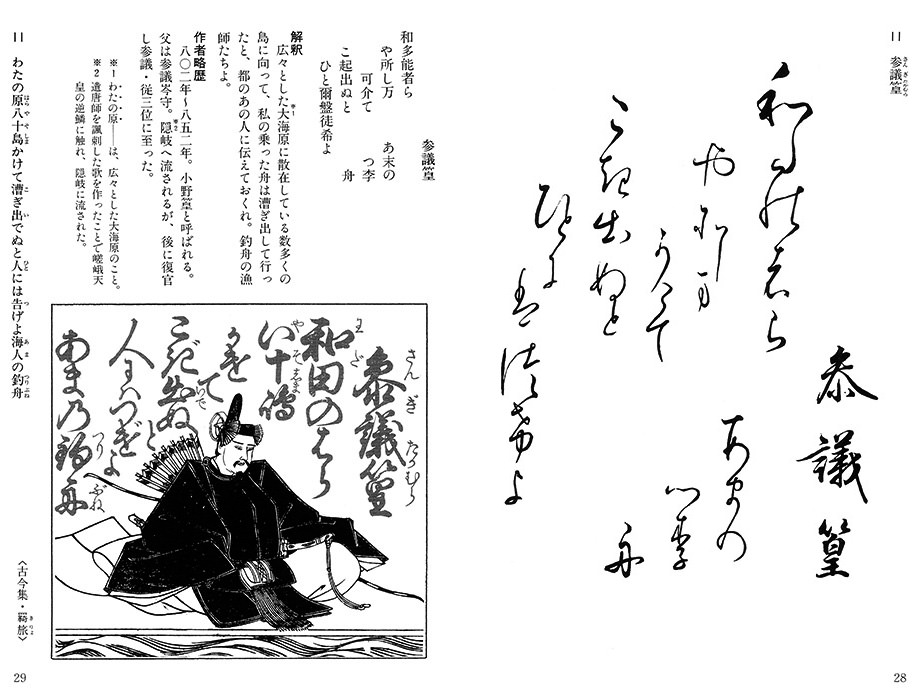 11 参議篁
参議篁
和多能者ら
や所し万
可介て
あ末の
つ李
舟
こ起出ぬと
ひと爾盤徒希よ
28
参議篁
和多能者ら
や所し万 あ末の
可介て つ李
こ起出ぬと 舟
ひと爾盤徒希よ
解釈
広々とした大海原に散在している数多くの
島に向って、私の乗った舟は漕ぎ出して行っ
たと、都のあの人に伝えておくれ。釣舟の漁
師たちよ。
作者略歴
八〇二年〜八五二年。小野篁と呼ばれる。
父は参議岑守。隠岐へ流されるが、後に復官
し参議・従三位に至った。
※1 わたの原――は、広々とした大海原のこと。
※2 遣唐師を諷刺した歌を作ったことで嵯峨天
皇の逆鱗に触れ、隠岐に流された。
参議篁
和田のはら
八十嶋
かけて
こぎ出ぬと
人にはつげよ
あまの釣舟
11 わたの原八十島かけて漕ぎ出でぬと人には告げよ海人の釣舟
〈古今集・羇旅〉
29